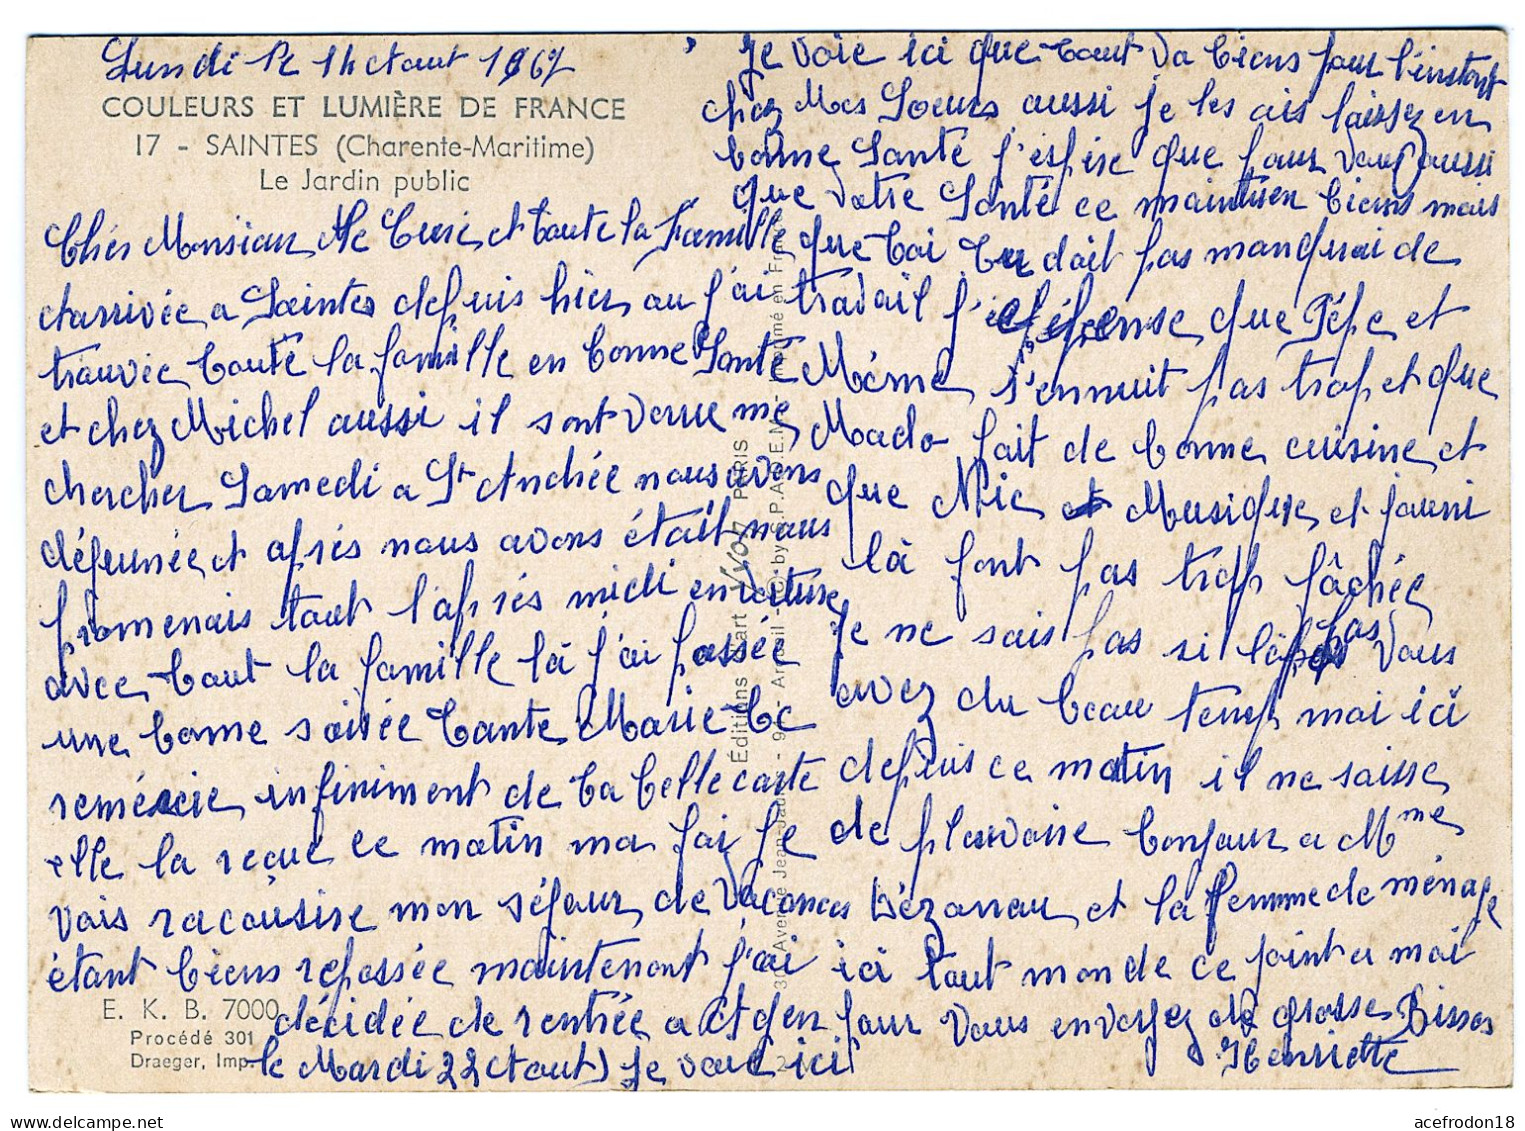 Lundi le 14 Aout 1967
COULEURS ET LUMIÈRE DE FRANCE
17 - SAINTES (Charente-Maritime)
Le Jardin public
Chér Monsieur Me Curé et toute la Famille
arrivée a Saintes depuis hier au j'ai
trouvée touté la famille en bonne Santé
et chez Michel aussi il sont venue me
chercher Samedi a St André nous avons
déjeunée et aprés nous avons était nous
promenais tout l'aprés midi en voiture
avec tout la famille là j'ai passée
une bonne soirée Tante Marie te
remércie infiniment de ta belle carte
elle la reçue ce matin moi j'ai je
vais racousire mon séjour de Vacances
étant biens repossée maintenant j'ai
décidée de rentrée a Agen
le Mardi 22 Aout) je vois ici
E. K. B. 7000
Procédé 301
Draeger, Imp.
Éditions d'art Yvon PARIS
30, Avenue Jean-Jaurès - 94 - Arcueil - © by S.P.A.D.E.M. - Imprimé en France
je voie ici que tout va biens pour l'instant
chez Mes Soeurs aussi je les ais laissez en
bonne Santé j'espire que pour vous aussi
que votre Santé ce maintien biens mais
que toi tu doit pas manquai de
travail j'espense que Pépe et
Méme s'ennuit pas trop et que
Mado fait de bonne cuisine et
que Mic et Musique et jouni
là font pas trop fâchée
je ne sais pas si làpas vous
avez du beau temps moi ici
depuis ce matin il ne saisse
de pleuvoire bonjour a Mme
Bézaneau et la femme de ménage
ici tout monde ce joint a moi
pour vous envoyez de grosse Bisses
Henriette
acefrodon18